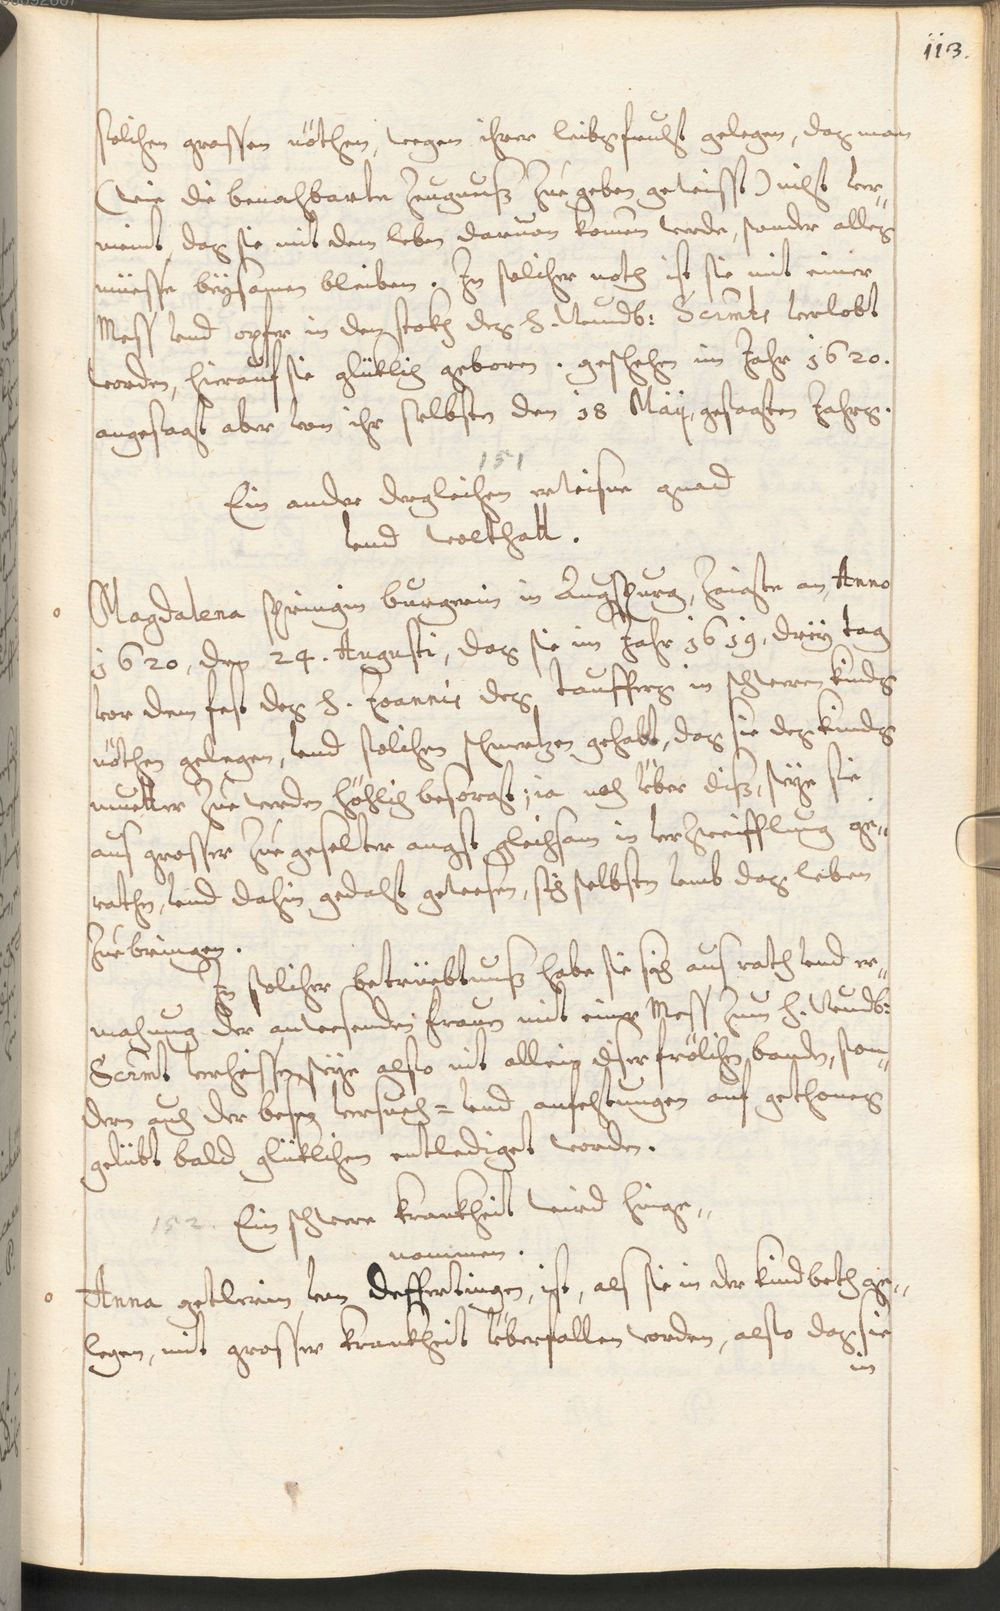 113.
solchen grossen nöthen, wegen ihrer leibsfrucht gelegen, das man
(wie die benachbarte Zeugnuß Zue geben gewisst) nicht ver„
meint, das sie mit dem leben daruon komen werde, sonder alles
müesse beÿsamen bleiben. In solcher noth ist sie mit einer
Mess vnd opfer in den stokh des H. Wundb: Scrmts verlobt
worden, hierauf sie glüklich geboren. geschehen im Jahr 1620.
angesagt aber von ihr selbsten den 18 Maÿ, gesagten Jahrs.
151
Ein ander dergleichen erwisne gnad
vnd wolthatt.
Magdalena springin burgerin in Augspurg, Zaigte an, Anno
1620, den 24. Augusti, das sie im Jahr 1619, dreÿ tag
vor dem fest des H. Joannis des Tauffers in schweren kinds
nöthen gelegen, vnd solchen schmertzen gehabt, das sie des kinds
mutter Zue werden höchlich besorgt; ia noch über diß, seÿe sie
aus grosser Zuegeselter angst gleichsam in verZweifflung ge„
rathen, vnd dahin gedacht gewesen, sich selbsten vmb das leben
Zue bringen.
In solcher betrüebtnuß habe sie sich aus rath vnd er„
mahnung der anwesenden frauen mit einer Mess Zum H. Wundb:
Scrmt verheissen, seÿe also nit allein diser frölichen banden, son„
dern auch der bösen versuch= vnd anfechtungen auf gethones
gelübt bald glüklichen entlediget worden.
152. Ein schwere krankheit wird hinge„
nommen.
Anna getlerin von Deffertingen, ist, als sie in der kindbeth ge„
legen, mit grosser krankheit überfallen worden, also das sie
in